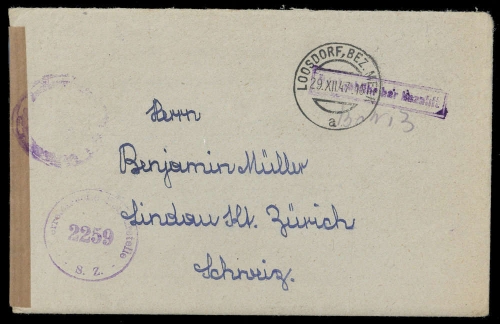 LOOSDORF, BEZ. MELK
29.XII.47
a
bar bezahlt.
Herrn
Benjamin Müller
Lindau Kt. Zürich
Schweiz.
2259
S. Z.